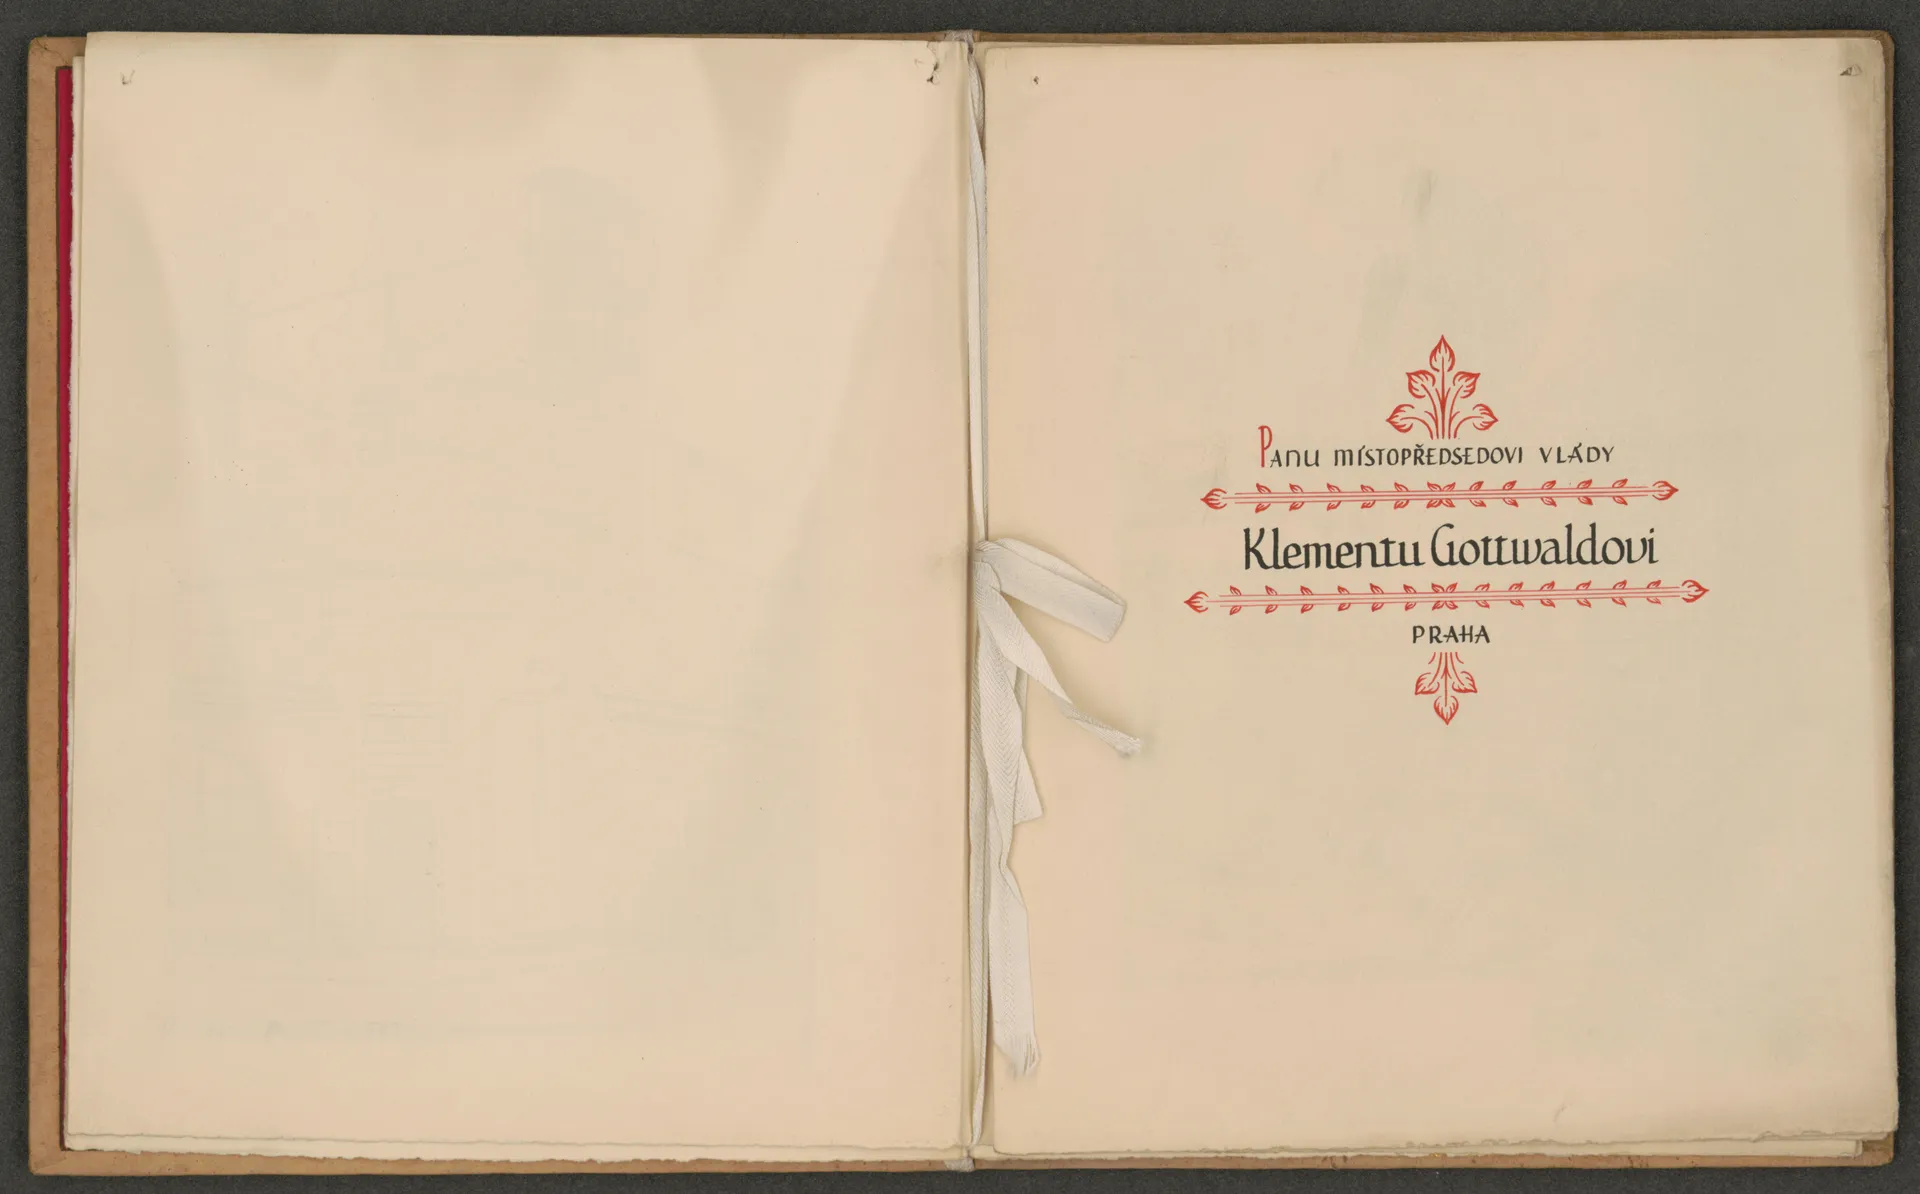 Panu místopředsedovi vlády
Klementu Gottwaldovi
PRAHA